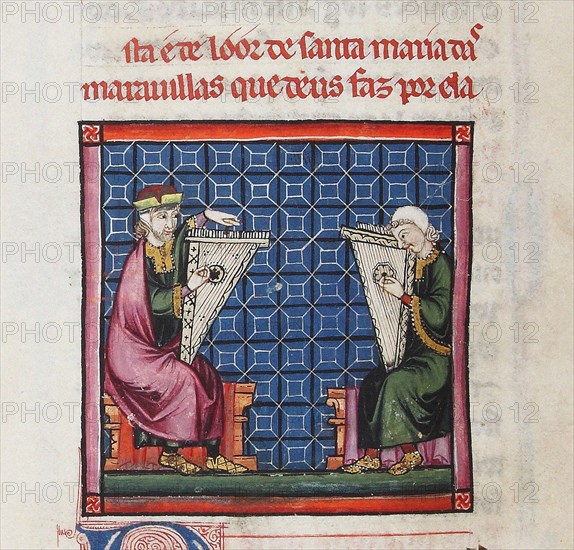 sta é de lóór de santa maria das
marauillas que deus faz por ela
PHOTO 12